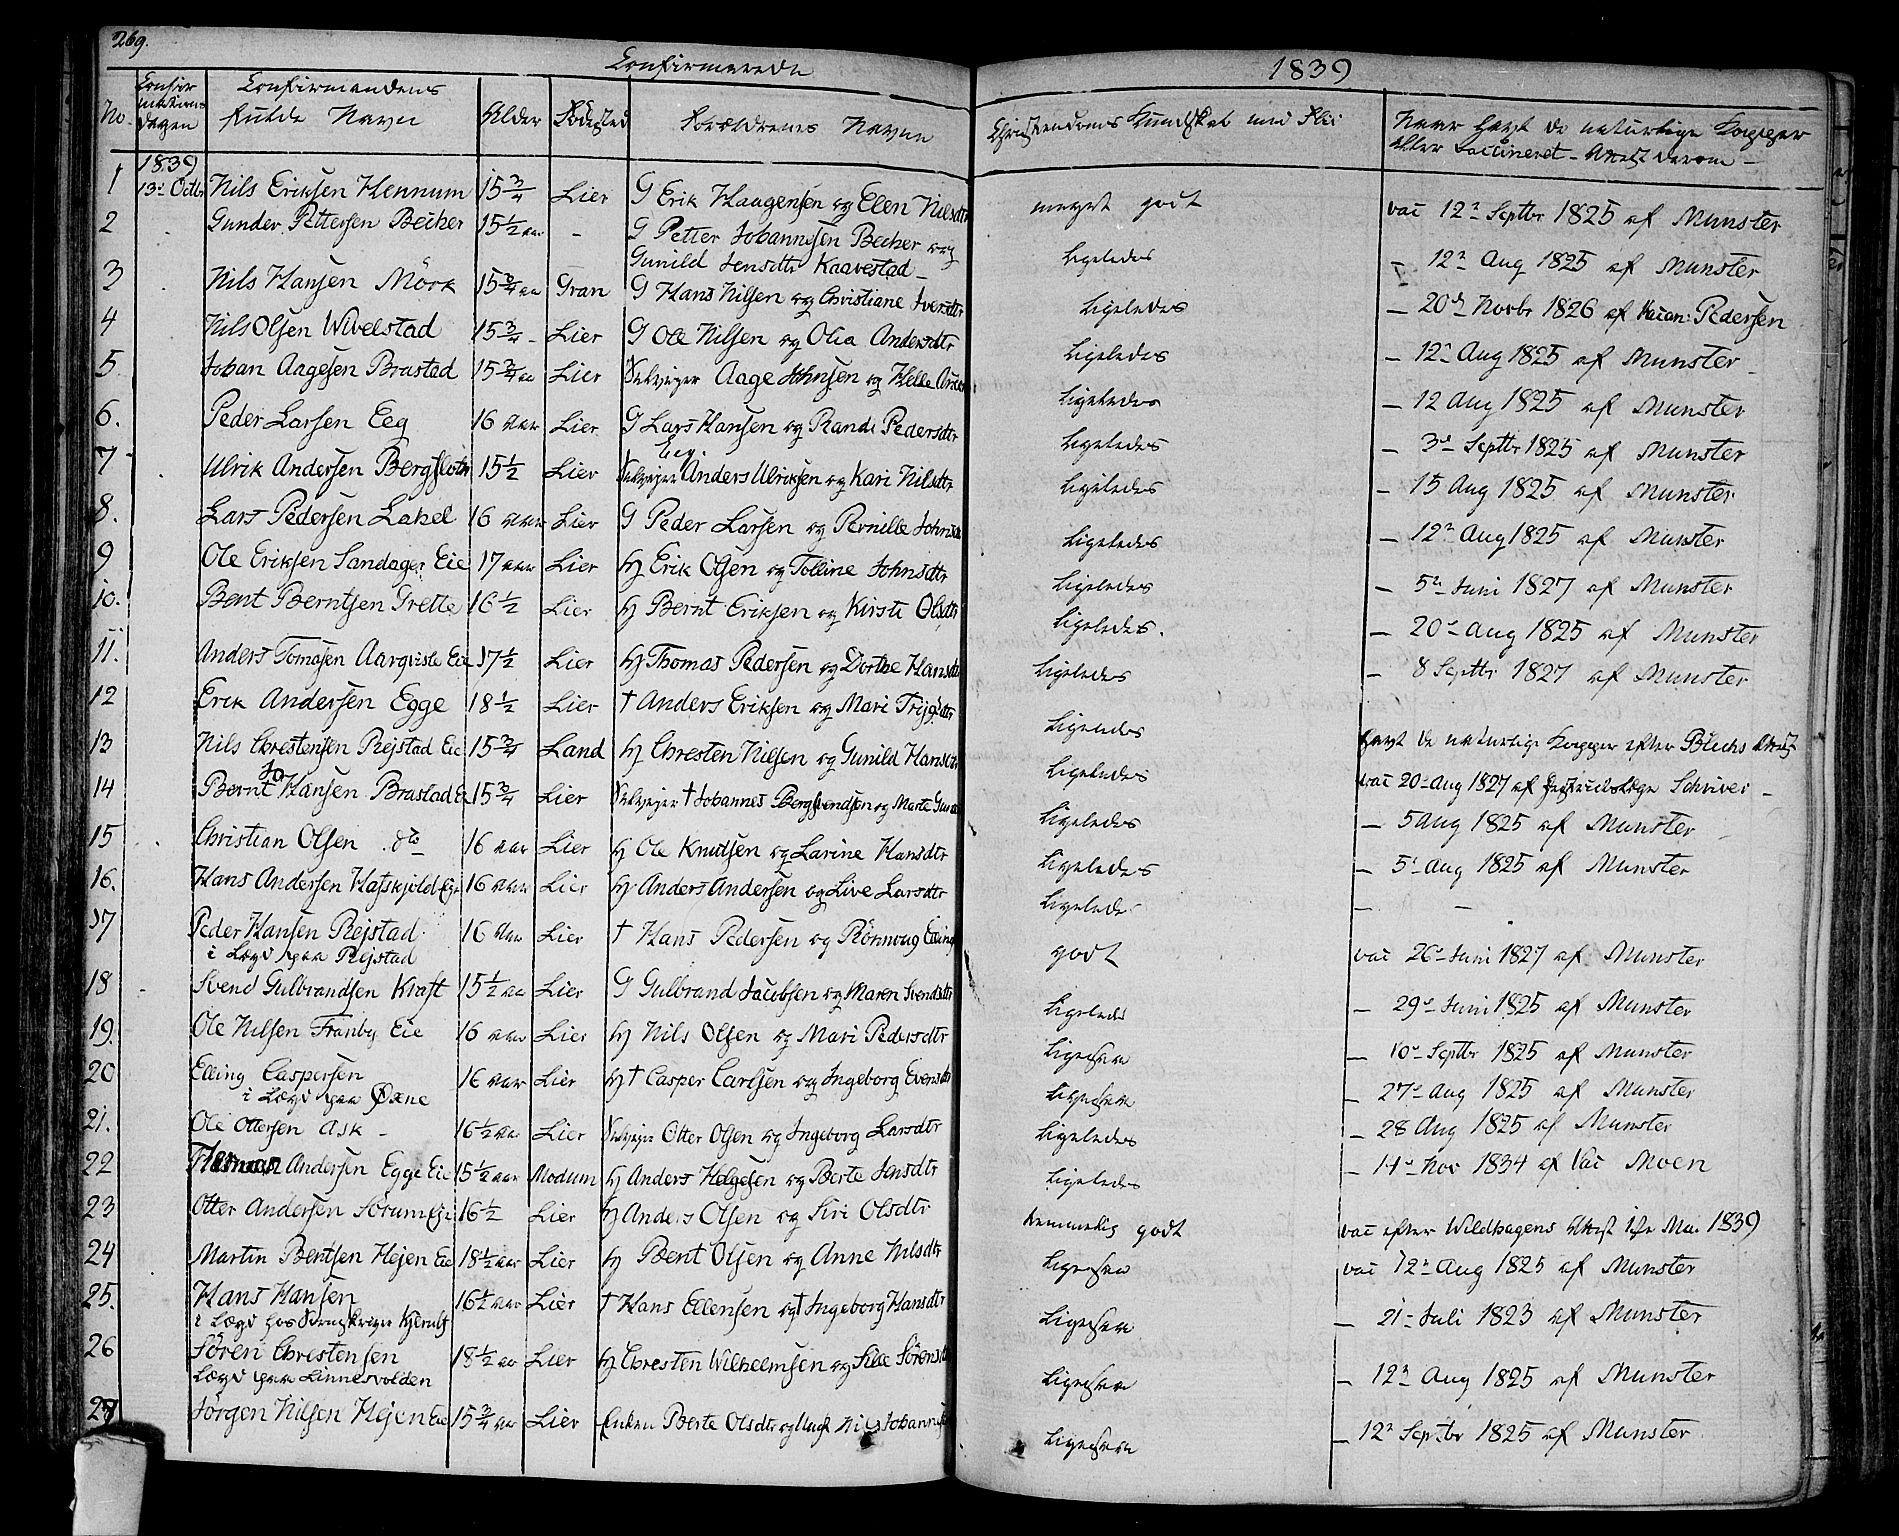 269.
Confirmerede 1839
No. Confirmations Dagen Confirmandens fulde Navn Alder Födested Forældrenes Navne Christendoms Kundskab med Flid Naar havt de naturlige Kopper eller vaccineret - Attest derom -
1839
1 13de Octbr Nils Eriksen Hennum 15 3/4 Lier G Erik Haagensen og Elen Nilsdtr meget godt vac 12te Septbr 1825 af Munster
2 Gunder Pettersen Becker 15 1/2 aar - G Petter Johannesen Becker og Gunild Jensdtr Kaavestad - ligeledes - 12te Aug 1825 af Munster
3 Nils Hansen Mörk 15 3/4 aar Gran G Hans Nilsen og Christiane Iversdtr ligeledes - 20de Novbr 1826 af Vaccin: Pedersen
4 Nils Olsen Wivelstad 15 3/4 - Lier G Ole Nilsen og Olia Andersdtr ligeledes - 12te Aug 1825 af Munster -
5 Johan Aagesen Brastad 15 3/4 aar Lier Selveyer Aage Johnsen og Helle ligeledes - 12 Aug 1825 af Munster
6. Peder Larsen Eeg 16 aar Lier G Lars Hansen og Randi Pedersdtr Eeg. ligeledes - 3de Septbr 1825 af Munster
7 Ulrik Andersen Bergsloten 15 1/2 Lier Selveyer Anders Ulriksen og Kari Nilsdtr ligeledes - 15 Aug 1825 af Munster
8. Lars Pedersen Lahel 16 aar Lier G Peder Larsen og Pernille Johnsdtr ligeledes - 12te Aug 1825 af Munster
9 Ole Eriksen Sandager Eie 17 aar Lier Hm Erik Olsen og Tolline Johnsdtr ligeledes - 5te Juni 1827 af Munster
10. Bent Berntsen Grette 16 1/2 Lier Hm Bernt Eriksen og Kirsti Olsdtr ligeledes. - 20de Aug 1825 af Munster
11. Anders Tomasen Aarqvisle Eie 17 1/2 Lier Hm Thomas Pedersen og Dorthe Hansdtr ligeledes - 8 Septbr 1827 af Munster
12 Erik Andersen Egge 18 1/2 Lier † Anders Eriksen og Mari Trygsdtr ligeledes havt de naturlige Kopper efter Blechs Attest
13 Nils Chrestensen Rejstad Eie 15 3/4 Land Hm Chresten Nielsen og Gunild Hansdtr ligeledes vac 20de Aug 1827 af Schriver -
14 Bernt Johansen Brastad E 15 3/4 Lier Selveyer † Johannes Bergsvendsen og Marte ligeledes - 5 Aug 1825 af Munster
15 Christian Olsen dto 16 aar Lier Hm Ole Knudsen og Larine Hansdtr ligeledes - 5te Aug 1825 af Munster
16. Hans Andersen Hafskjold Eie 16 aar Lier Hm Anders Andersen og Live Larsdtr ligeledes - -
17 Peder Hansen Rejstad i Lægd paa Rejstad 16 Aar Lier † Hans Pedersen og Rönnoug godt vac 26de Juni 1827 af Munster
18 Svend Gulbrandsen Kraft 15 1/2 aar Lier G Gulbrand Jacobsen og Maren Svendsdtr ligeledes - 29de Juni 1825 af Munster
19. Ole Nilsen Tranby Eie 16 aar Lier Hm Nils Olsen og Mari Pedersdtr ligesaa - 10de Septbr 1825 af Munster
20 Elling Caspersen i Lægd paa Øxne 16 aar Lier Hm † Casper Carlsen og Ingeborg Evensdtr ligesaa - 27de Aug 1825 af Munster
21. Ole Ottersen Ask - 16 1/2 aar Lier Selveyer Otter Olsen og Ingeborg Larsdtr ligeledes - 28 Aug 1825 af Munster
22 Andersen Egge Eie 15 1/2 aar Modum Hm Anders Helgesen og Berte Jensdtr ligeledes - 14de Nov 1834 af Vac Moen
23 Otter Andersen Sörum Eje 16 1/2 Lier Hm Anders Olsen og Siri Olsdtr temmelig godt vac efter Wildhagens Attest Mai 1839
24 Martin Bentsen Hejen Eie 18 1/2 aar Lier Hm Bent Olsen og Anne Nilsdtr ligesaa vac 12te Aug 1825 af Munster
25. Hans Hansen i Lægd hos Sorenskriver Hjerulf 16 1/2 aar Lier † Hans Ellensen og † Ingeborg Hansdtr ligesaa - 21de Juli 1823 af Munster
26 Sören Chrestensen Lægd paa Linnesvolden 18 1/2 aar Lier Hm Chresten Wilhelmsen og Silie Sörensdtr ligesaa - 12te Aug 1825 af Munster
27 Jörgen Nilsen Hejen Eie 15 3/4 aar Lier Enken Berte Olsdtr og Ungk Nils Johannesen ligesaa - 12te Septbr 1825 af Munster